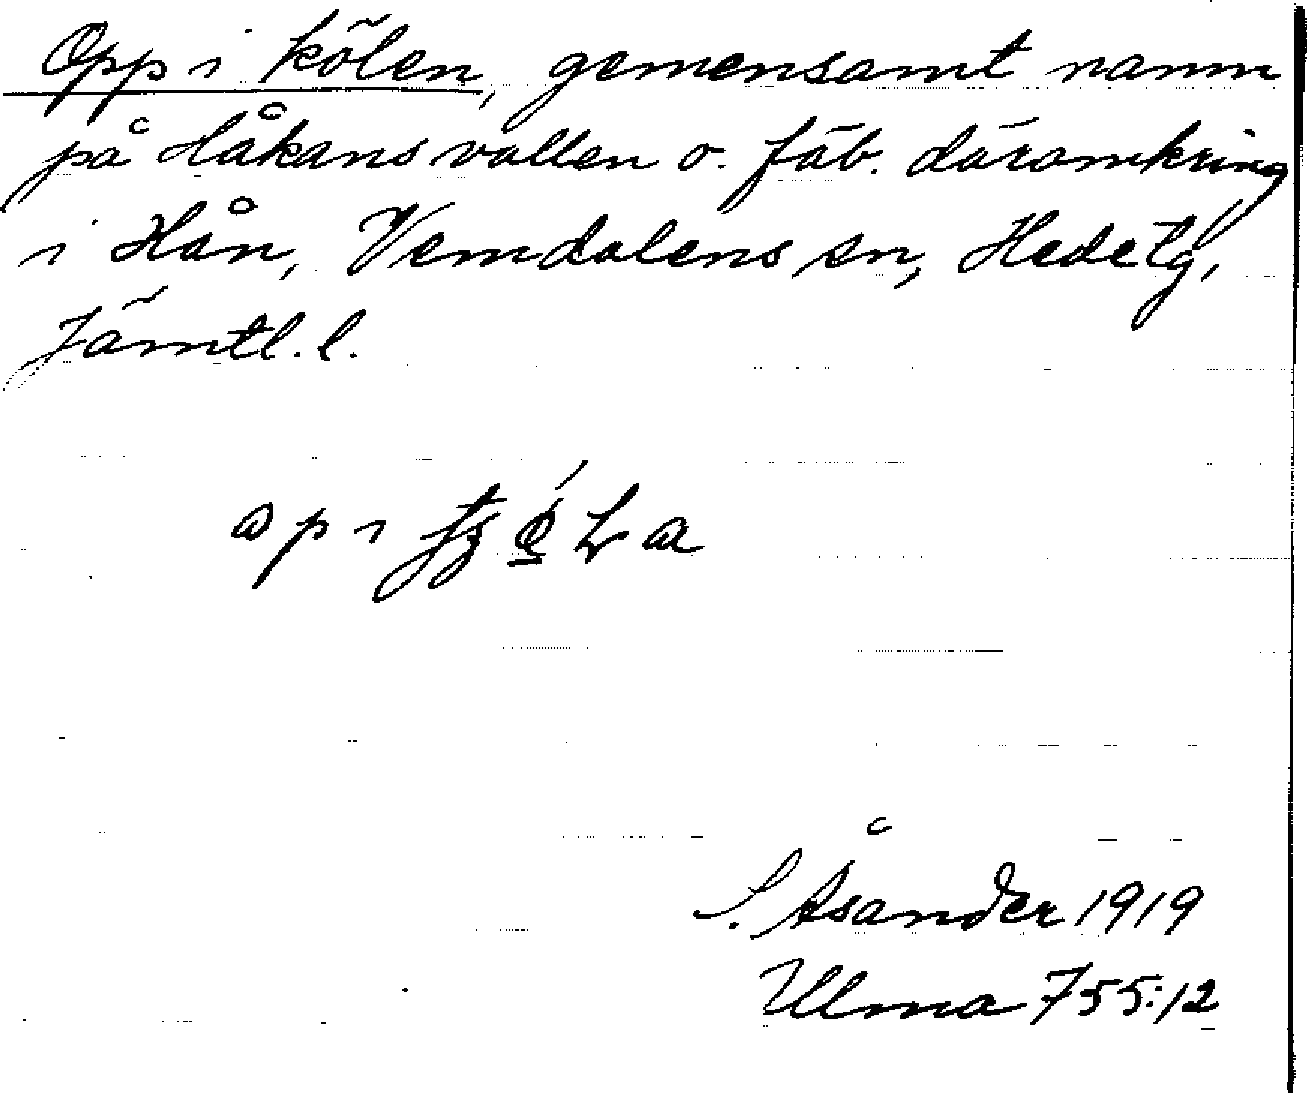 Opp i kölen, gemensamt namn
på Håkansvallen o. fäb. däromkring
i Hån, Vemdalens sn, Hede tg,
Jämtl. l.
S. Åsander 1919
Ulma 755:12